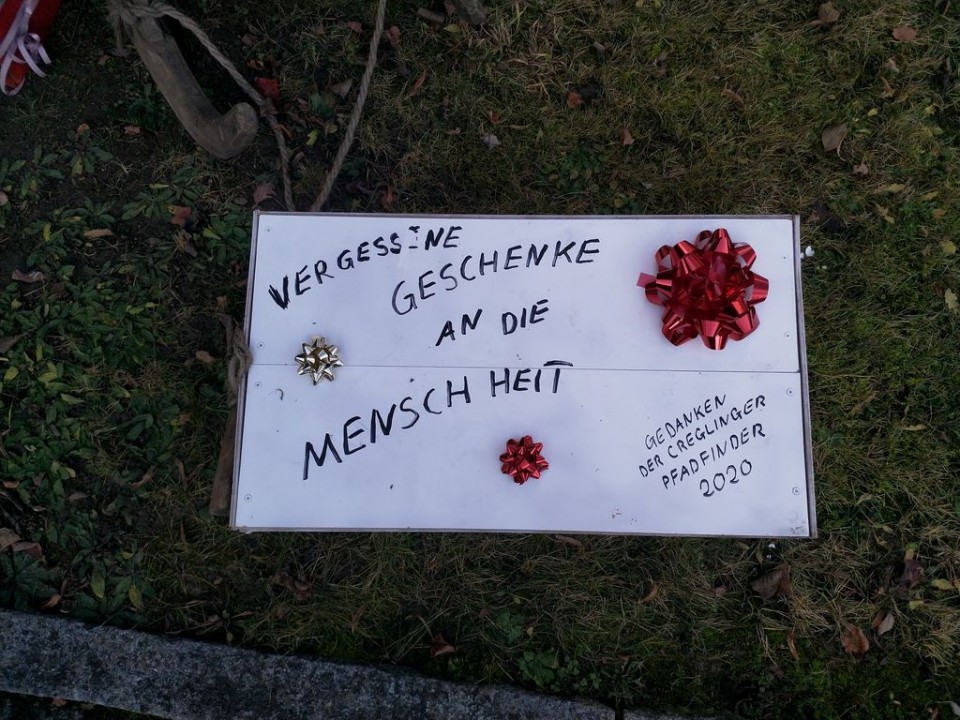 VERGESSENE
GESCHENKE
AN DIE
MENSCHHEIT
GEDANKEN
DER CREGLINGER
PFADFINDER
2020